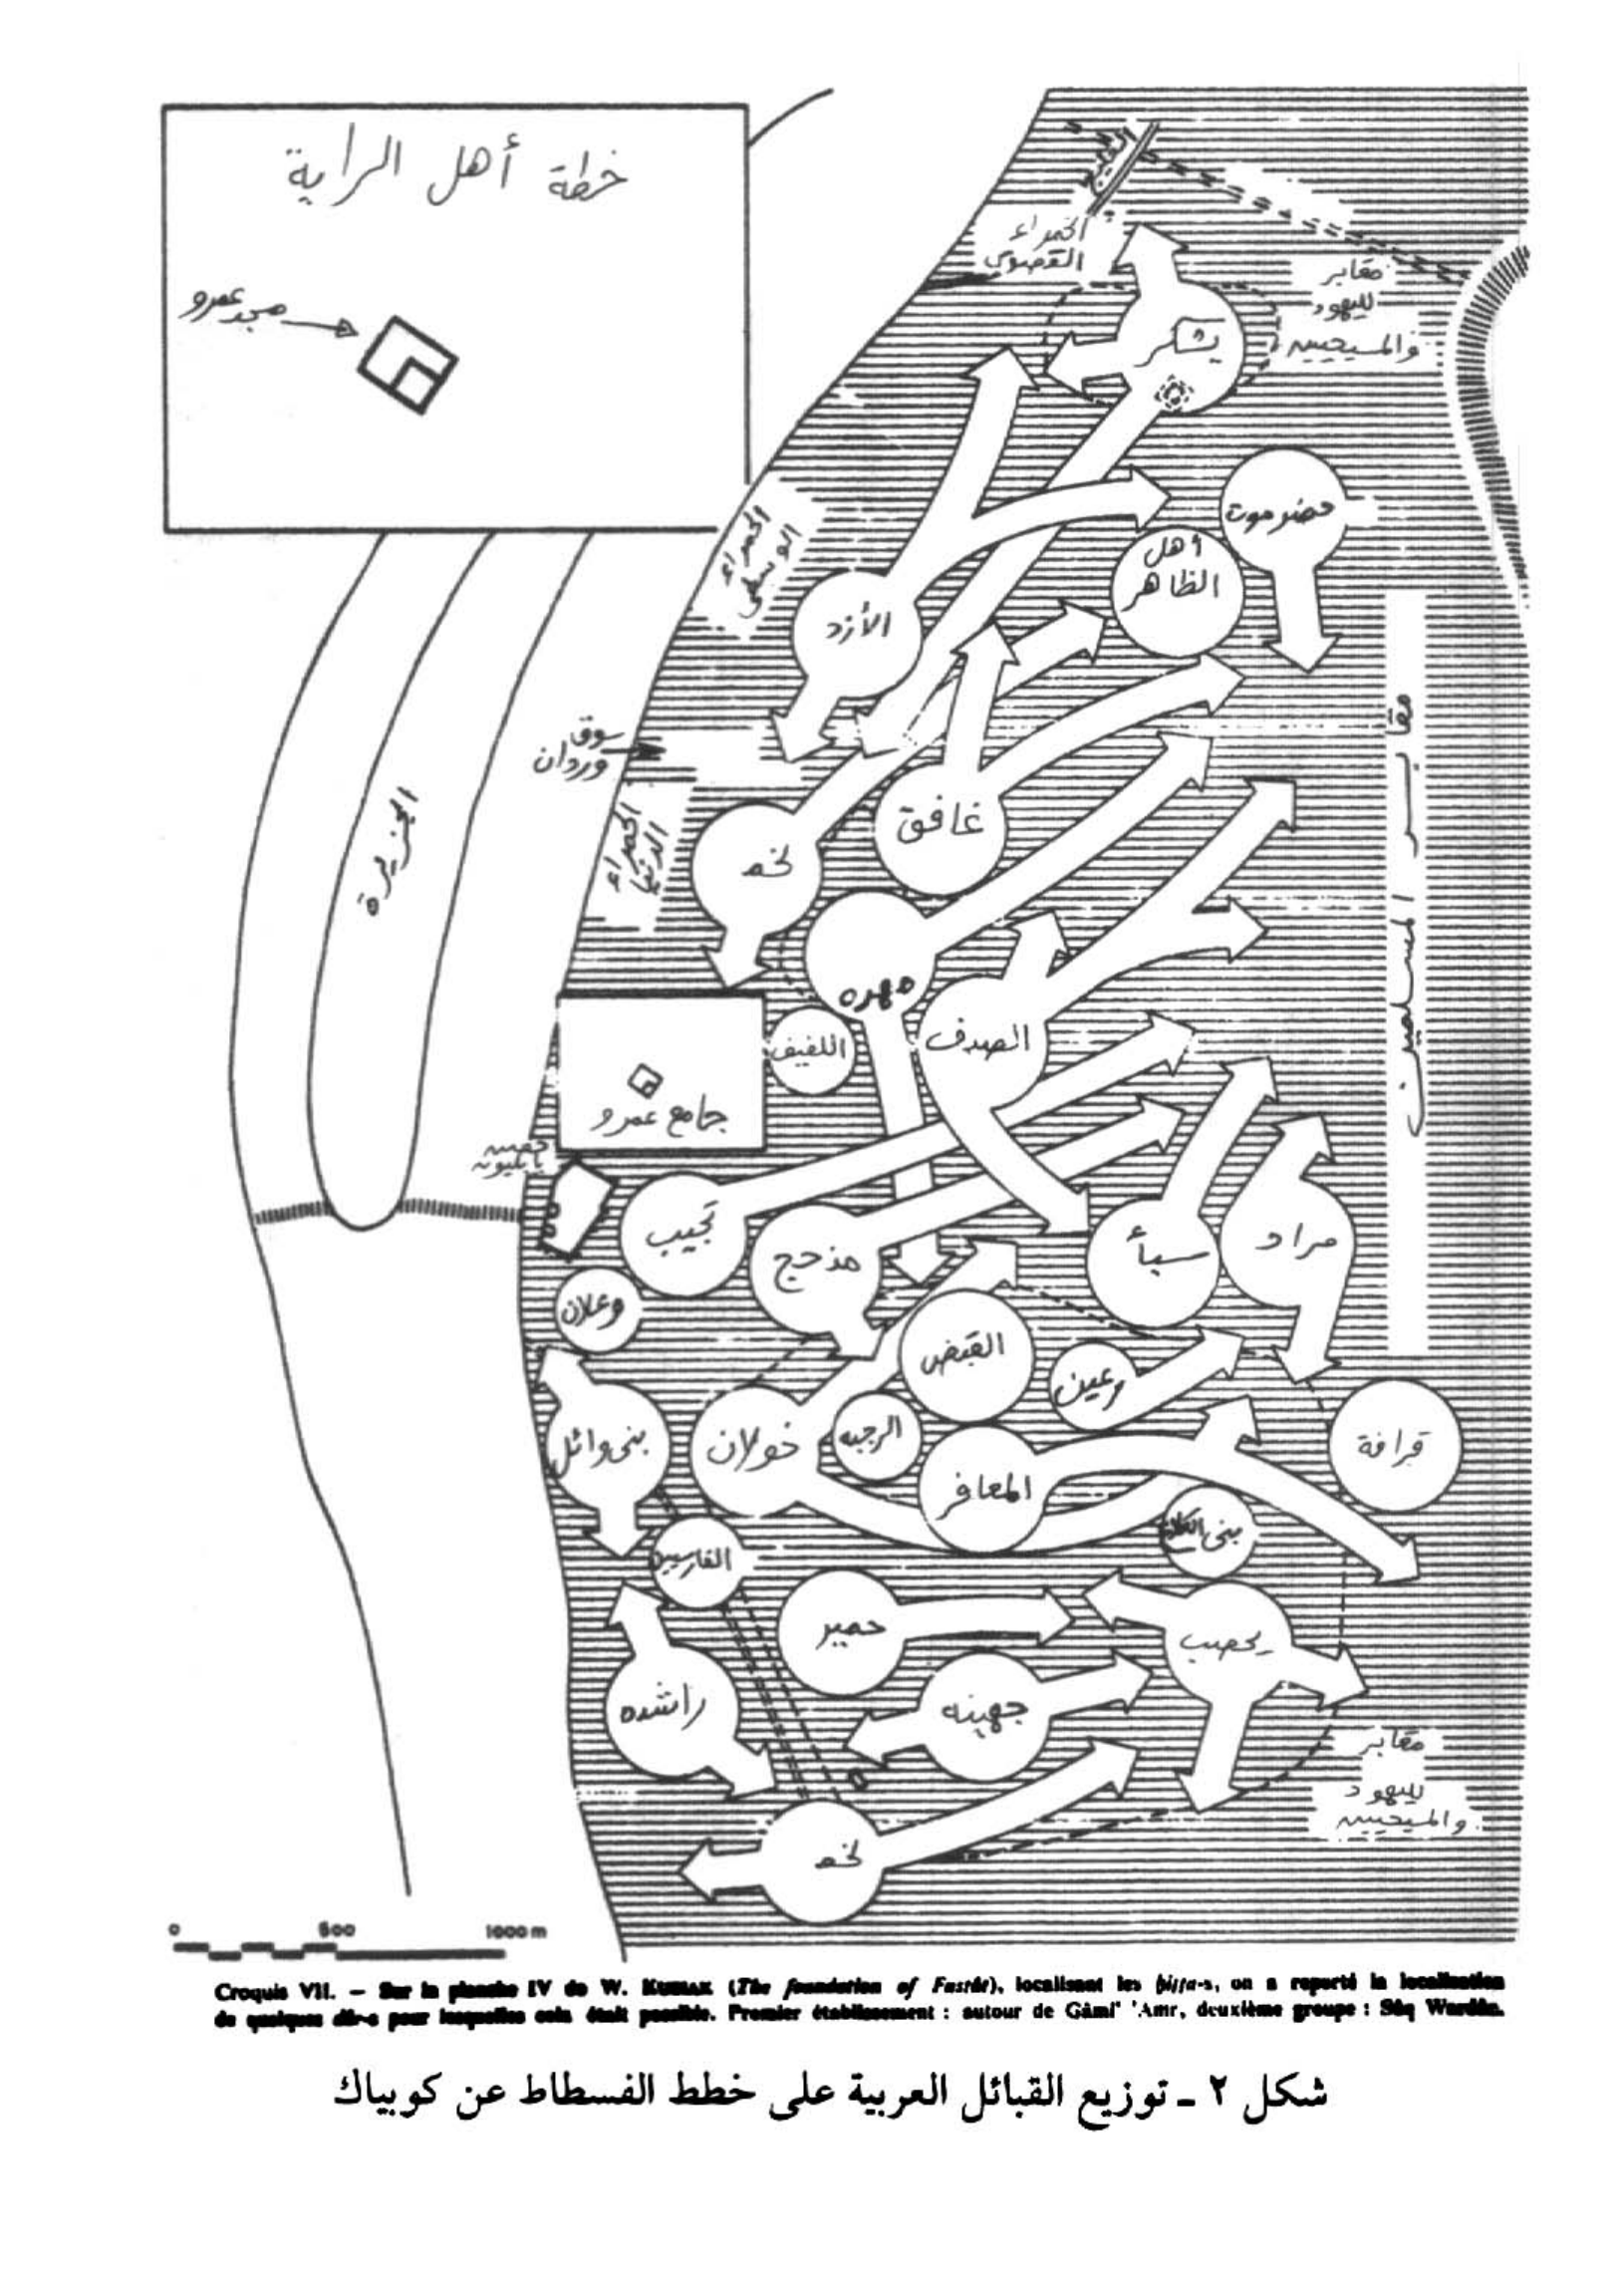 خطة أهل الراية
مسجد عمرو
الخليج
الحمراء
القصوى
مقابر
لليهود
والمسيحيين
يشكر
حضرموت
أهل
الظاهر
الحمراء
الوسطى
الأزد
سوق
وردان
الجزيرة
الحمراء
الدنيا
غافق
لخم
مهره
اللفيف
الصدف
مقابر المسلمين
جامع عمرو
حصن
بابليون
تجيب
مذحج
سبأ
مراد
وعلان
القبض
رعين
بنى وائل
خولان
الرحبه
المعافر
قرافة
الفارسيين
بنى الكلاع
حمير
يحصب
راشده
جهينه
مقابر
لليهود
والمسيحيين
لخم
0 500 1000 m
Croquis VII. — Sur la planche IV de W. KUBIAK (The foundation of Fustât), localisant les ḫiṭṭa-s, on a reporté la localisation
de quelques dâr-s pour lesquelles cela était possible. Premier établissement : autour de Gâmi' 'Amr, deuxième groupe : Sûq Wardân.
شكل ٢ ـ توزيع القبائل العربية على خطط الفسطاط عن كوبياك